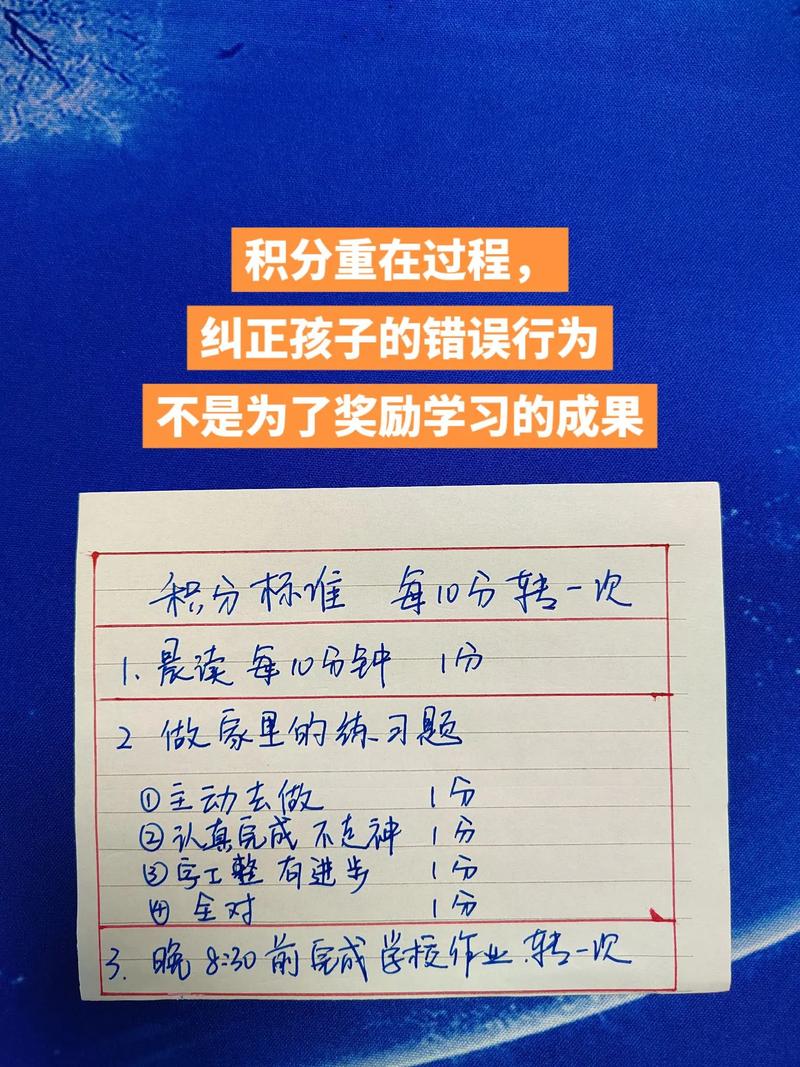 积分重在过程，
纠正孩子的错误行为
不是为了奖励学习的成果
积分标准 每10分转一次
1. 晨读 每10分钟 1分
2 做家里的练习题
①主动去做 1分
②认真完成 不走神 1分
③字工整 有进步 1分
④ 全对 1分
3. 晚8:30前完成学校作业.转一次